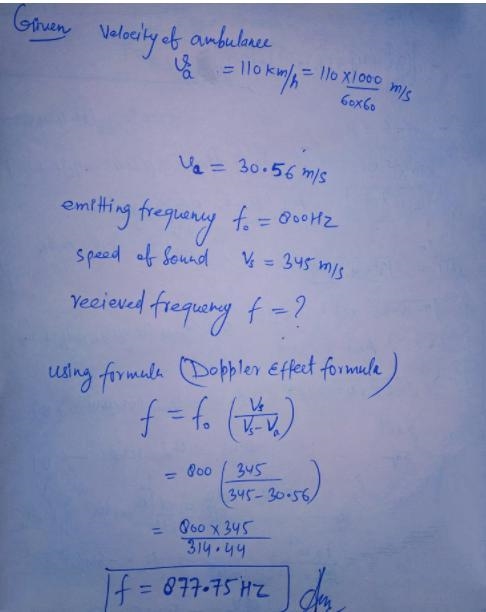 Given Velocity of ambulance
Va = 110 km/h = 110 x 1000 / 60x60 m/s
Va = 30.56 m/s
emitting frequency f₀ = 800HZ
speed of sound Vs = 345 m/s
recieved frequency f = ?
using formula (Doppler Effect formula)
f = f₀ (Vs / Vs - Va)
= 800 (345 / 345 - 30.56)
= 800 x 345 / 314.44
f = 877.75 HZ